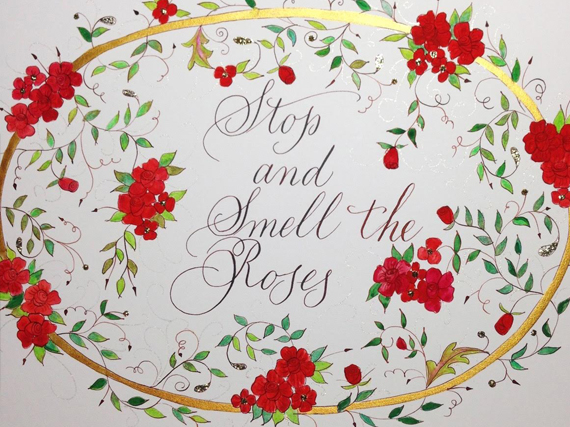 Stop
and
Smell the
Roses